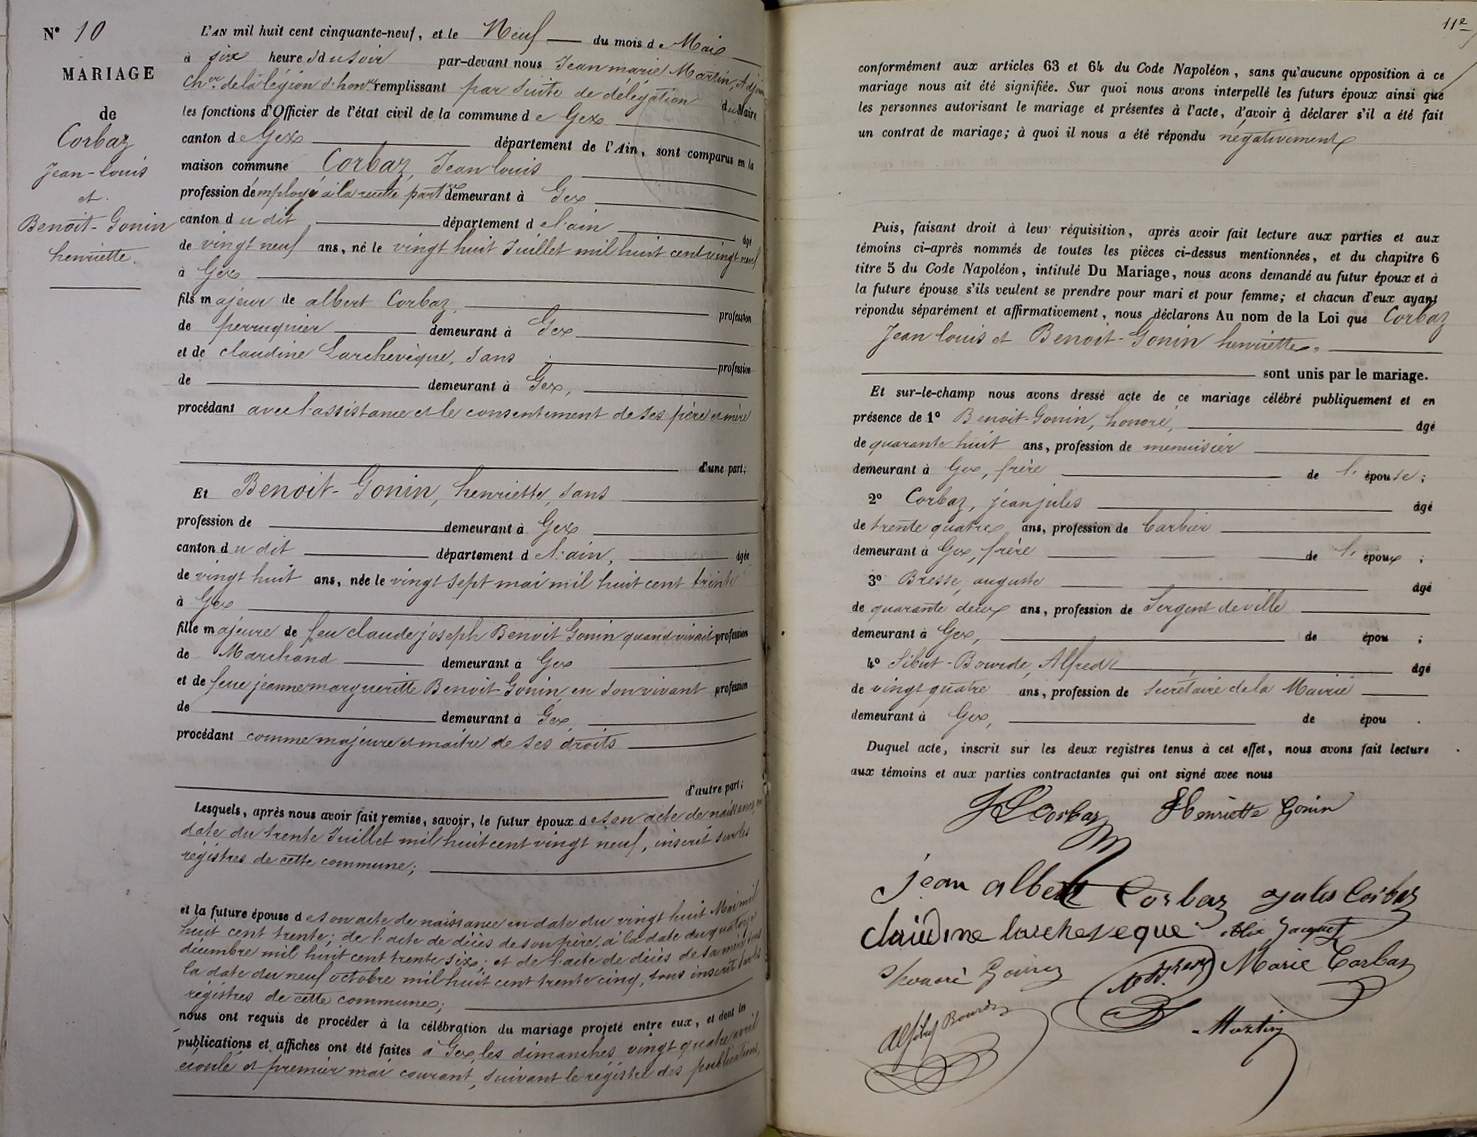 N° 10
MARIAGE
de
Corbaz
Jean-louis
et
Benoit-Gonin
henriette.
L'AN mil huit cent cinquante-neuf, et le Neuf du mois de Mai
à six heures du soir par-devant nous Jean marie Martin, Adjoint
Cher. de la légion d'honr remplissant par suite de délégation du Maire
les fonctions d'Officier de l'état civil de la commune de Gex
canton de Gex département de l'Ain, sont comparus en la
maison commune Corbaz, Jean louis
profession d'employé à la recette partre demeurant à Gex
canton du dit département de l'ain âgé
de vingt neuf ans, né le vingt huit Juillet mil huit cent vingt neuf
à Gex
fils majeur de albert Corbaz, profession
de perruquier demeurant à Gex
et de claudine Larchevèque, sans profession
de demeurant à Gex,
procédant avec l'assistance et le consentement de ses père et mère
d'une part;
Et Benoit-Gonin, henriette, sans
profession de demeurant à Gex
canton du dit département de l'ain, âgée
de vingt huit ans, née le vingt sept mai mil huit cent trente
à Gex
fille majeure de feu claude joseph Benoit Gonin quand vivait profession
de Marchand demeurant à Gex
et de feue jeanne marguerite Benoit Gonin en son vivant profession
de demeurant à Gex
procédant comme majeure et maitre de ses droits
d'autre part;
Lesquels, après nous avoir fait remise, savoir, le futur époux de son acte de naissance, en
date du trente Juillet mil huit cent vingt neuf, inscrit sur les
régistres de cette commune;
et la future épouse de son acte de naissance en date du vingt huit Mai mil
huit cent trente; de l'acte de décès de son père, à la date du quatorze
décembre mil huit cent trente six; et de l'acte de décès de sa mère, sous
la date du neuf octobre mil huit cent trente cinq, tous inscrits sur les
régistres de cette commune;
nous ont requis de procéder à la célébration du mariage projeté entre eux, et dont les
publications et affiches ont été faites à Gex, les dimanches vingt quatre avril
écoulé et premier mai courant, suivant le régistre des publications,
11e
conformément aux articles 63 et 64 du Code Napoléon, sans qu'aucune opposition à ce
mariage nous ait été signifiée. Sur quoi nous avons interpellé les futurs époux ainsi que
les personnes autorisant le mariage et présentes à l'acte, d'avoir à déclarer s'il a été fait
un contrat de mariage; à quoi il nous a été répondu négativement
Puis, faisant droit à leur réquisition, après avoir fait lecture aux parties et aux
témoins ci-après nommés de toutes les pièces ci-dessus mentionnées, et du chapitre 6
titre 5 du Code Napoléon, intitulé Du Mariage, nous avons demandé au futur époux et à
la future épouse s'ils veulent se prendre pour mari et pour femme; et chacun d'eux ayant
répondu séparément et affirmativement, nous déclarons Au nom de la Loi que Corbaz
Jean louis et Benoit-Gonin henriette.
sont unis par le mariage.
Et sur-le-champ nous avons dressé acte de ce mariage célébré publiquement et en
présence de 1° Benoit-Gonin, honoré, âgé
de quarante huit ans, profession de menuisier
demeurant à Gex, frère de l'épouse;
2° Corbaz, jean jules âgé
de trente quatre ans, profession de barbier
demeurant à Gex, frère de l'époux;
3° Bresse, auguste âgé
de quarante deux ans, profession de Sergent de ville
demeurant à Gex, de épou ;
4° Sibut-Bourde, Alfred âgé
de vingt quatre ans, profession de Secrétaire de la Mairie
demeurant à Gex, de épou .
Duquel acte, inscrit sur les deux registres tenus à cet effet, nous avons fait lecture
aux témoins et aux parties contractantes qui ont signé avec nous
JL Corbaz Henriette Gonin
jean albert Corbaz Jules Corbaz
claudine larcheveque Alix Jacquet
honoré Gonin Marie Corbaz
Alf Sibut Bourde Martin